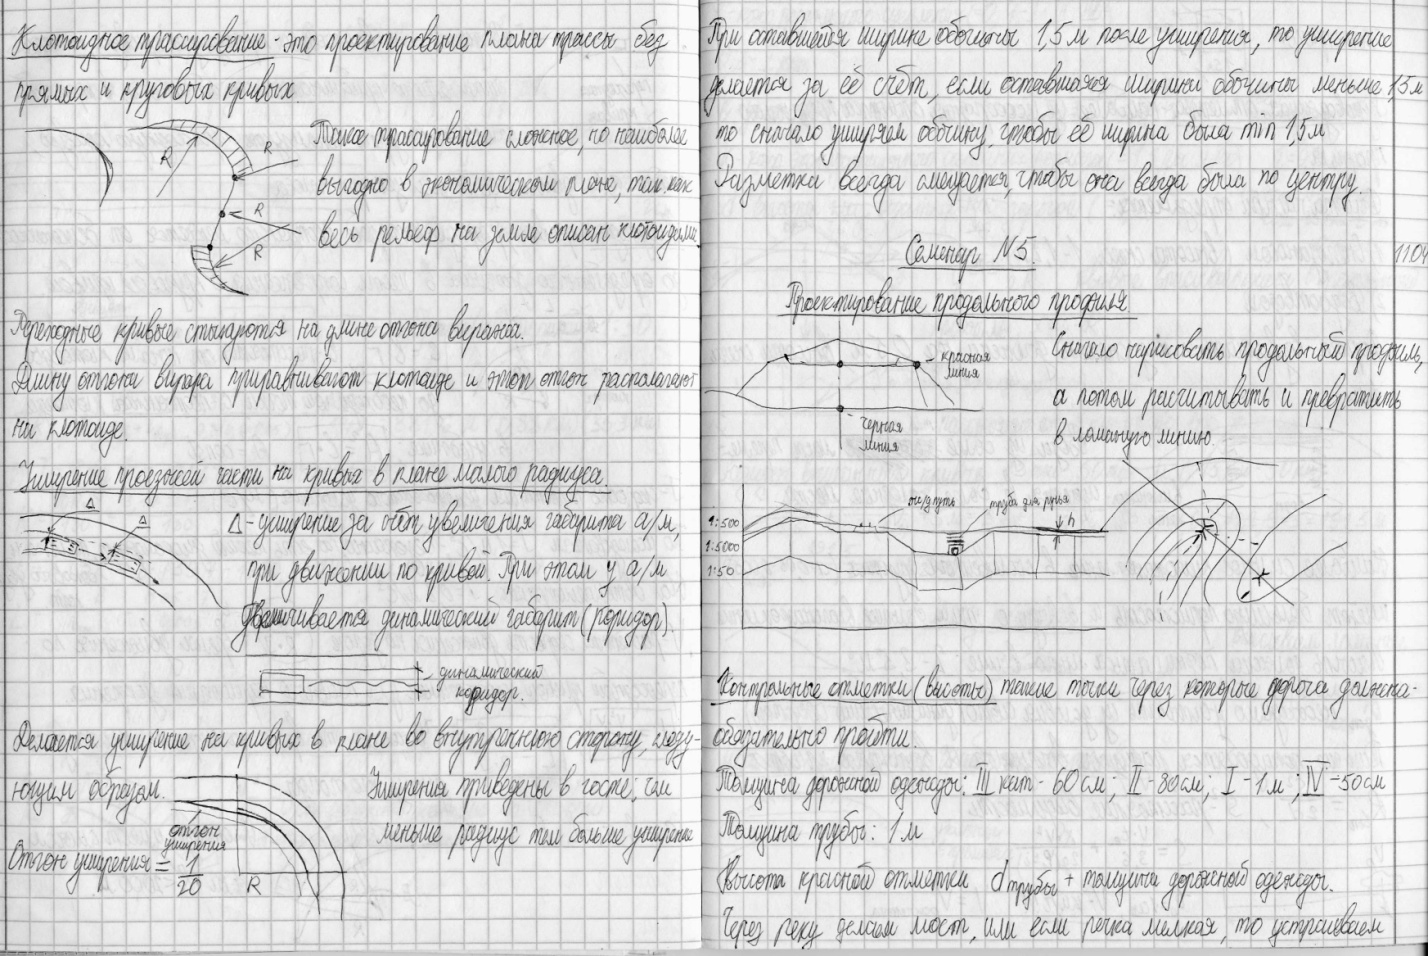 Клотоидное трассирование - это проектирование плана трассы без
прямых и круговых кривых.
Такое трассирование сложное, но наиболее
выгодно в экономическом плане, так как
весь рельеф на земле описан клотоидами.
R
R
R
R
Переходные кривые стыкуются на длине отгона виража.
Длину отгона виража приравнивают клотоиде и этот отгон располагают
на клотоиде.
Уширение проезжей части на кривых в плане малого радиуса.
Δ
Δ
Δ - уширение за счёт увеличения габарита а/м,
при движении по кривой. При этом у а/м
увеличивается динамический габарит (коридор).
динамический
коридор.
Делается уширение на кривых в плане во внутреннюю сторону, следу-
ющим образом.
Уширения приведены в госте; чем
меньше радиус тем больше уширение
отгон
уширения
Отгон уширения = 1/20
R
При оставшейся ширине обочины 1,5 м после уширения, то уширение
делается за её счёт, если оставшаяся ширина обочины меньше 1,5 м
то сначало уширяем обочину, чтобы её ширина была min 1,5 м
Разметка всегда смещается, чтобы она всегда была по центру.
Семенар N5.
1104
Проектирование продольного профиля.
красная
линия
черная
линия
Сначало нарисовать продольный профиль,
а потом расчитывать и превратить
в ломаную линию.
ж/д путь
труба для ручья
h
1:500
1:5000
1:50
Контрольные отметки (высоты) такие точки через которые дорога должна
обязательно пройти.
Толщина дорожной одежды: III кат - 60 см; II - 80 см; I - 1 м; IV - 50 см
Толщина трубы: 1 м
Высота красной отметки d трубы + толщина дорожной одежды.
Через реку делаем мост, или если речка мелкая, то устраиваем